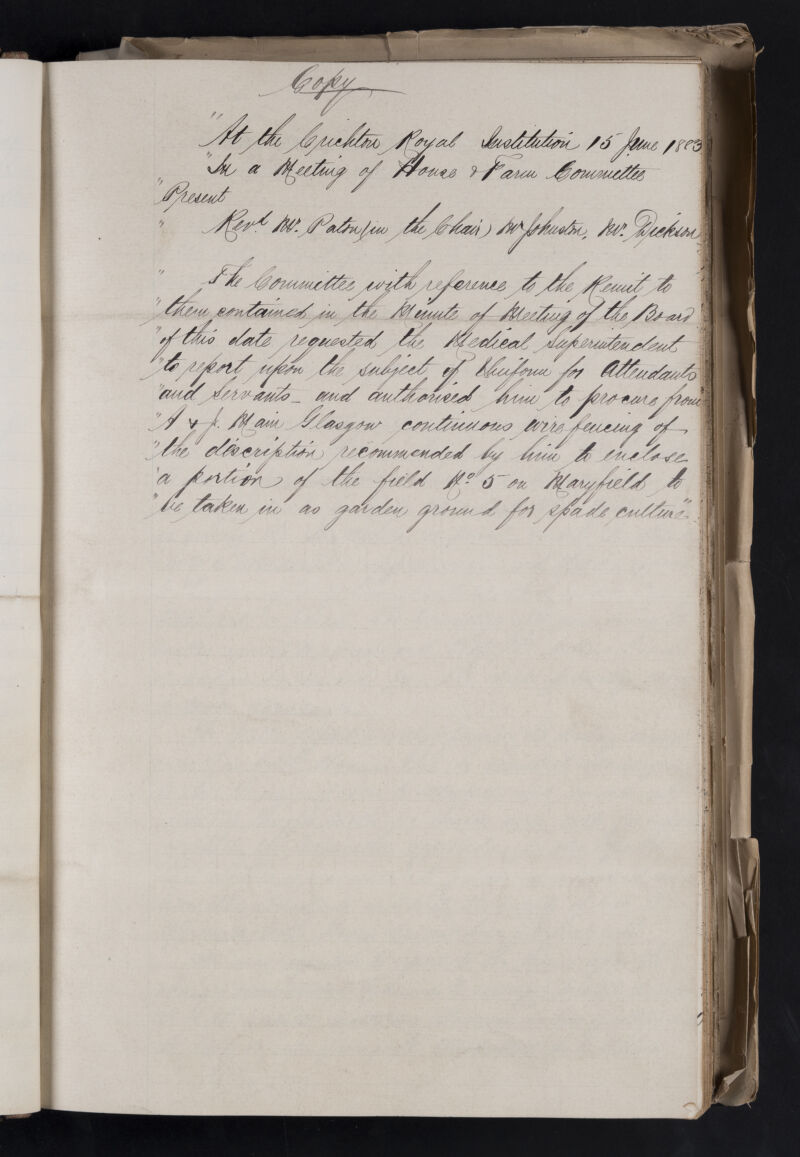 Copy
"At the Crichton Royal Institution 15 June 1883
"In a Meeting of House & Farm Committee
"Present
" Revd. Mr. Paton (in the Chair) Mr Johnston, Mr. Dickson
" The Committee with reference to the Remit to
"them contained in the Minute of Meeting of the Board
"of this date requested the Medical Superintendent
"to report upon the subject of Uniform for Attendants
"and Servants - and authorised him to procure from
"A & J. Main Glasgow continuous wire fencing of
"the discription recommended by him to enclose
"a portion of the field No. 5 on Maryfield to
"be taken in as garden ground for spade culture"